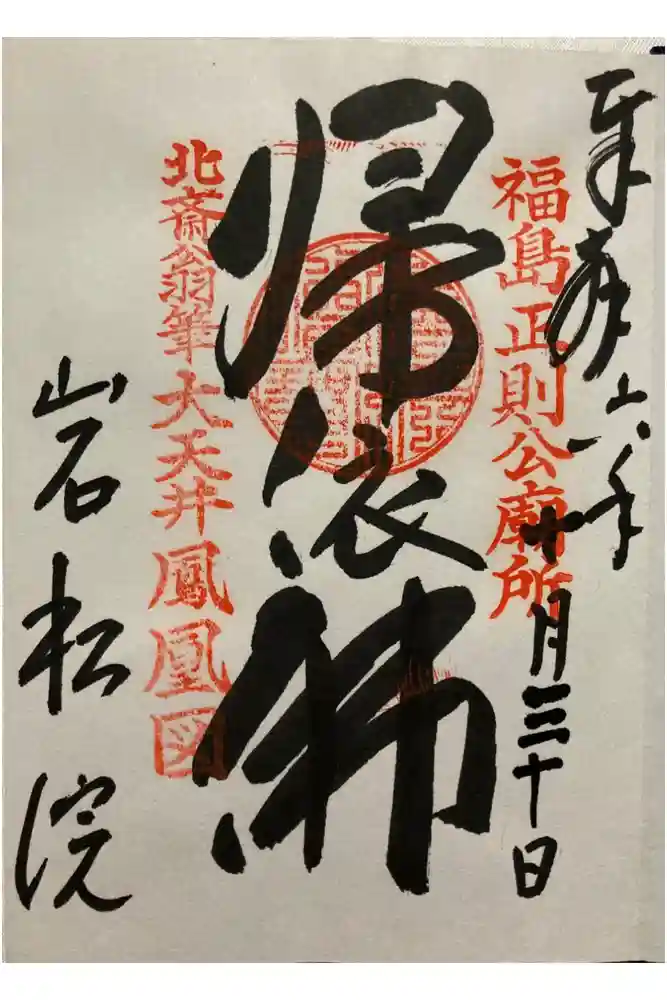 六年
十月三十日
福島正則公廟所
帰依佛
北斎翁筆大天井鳳凰図
岩松院